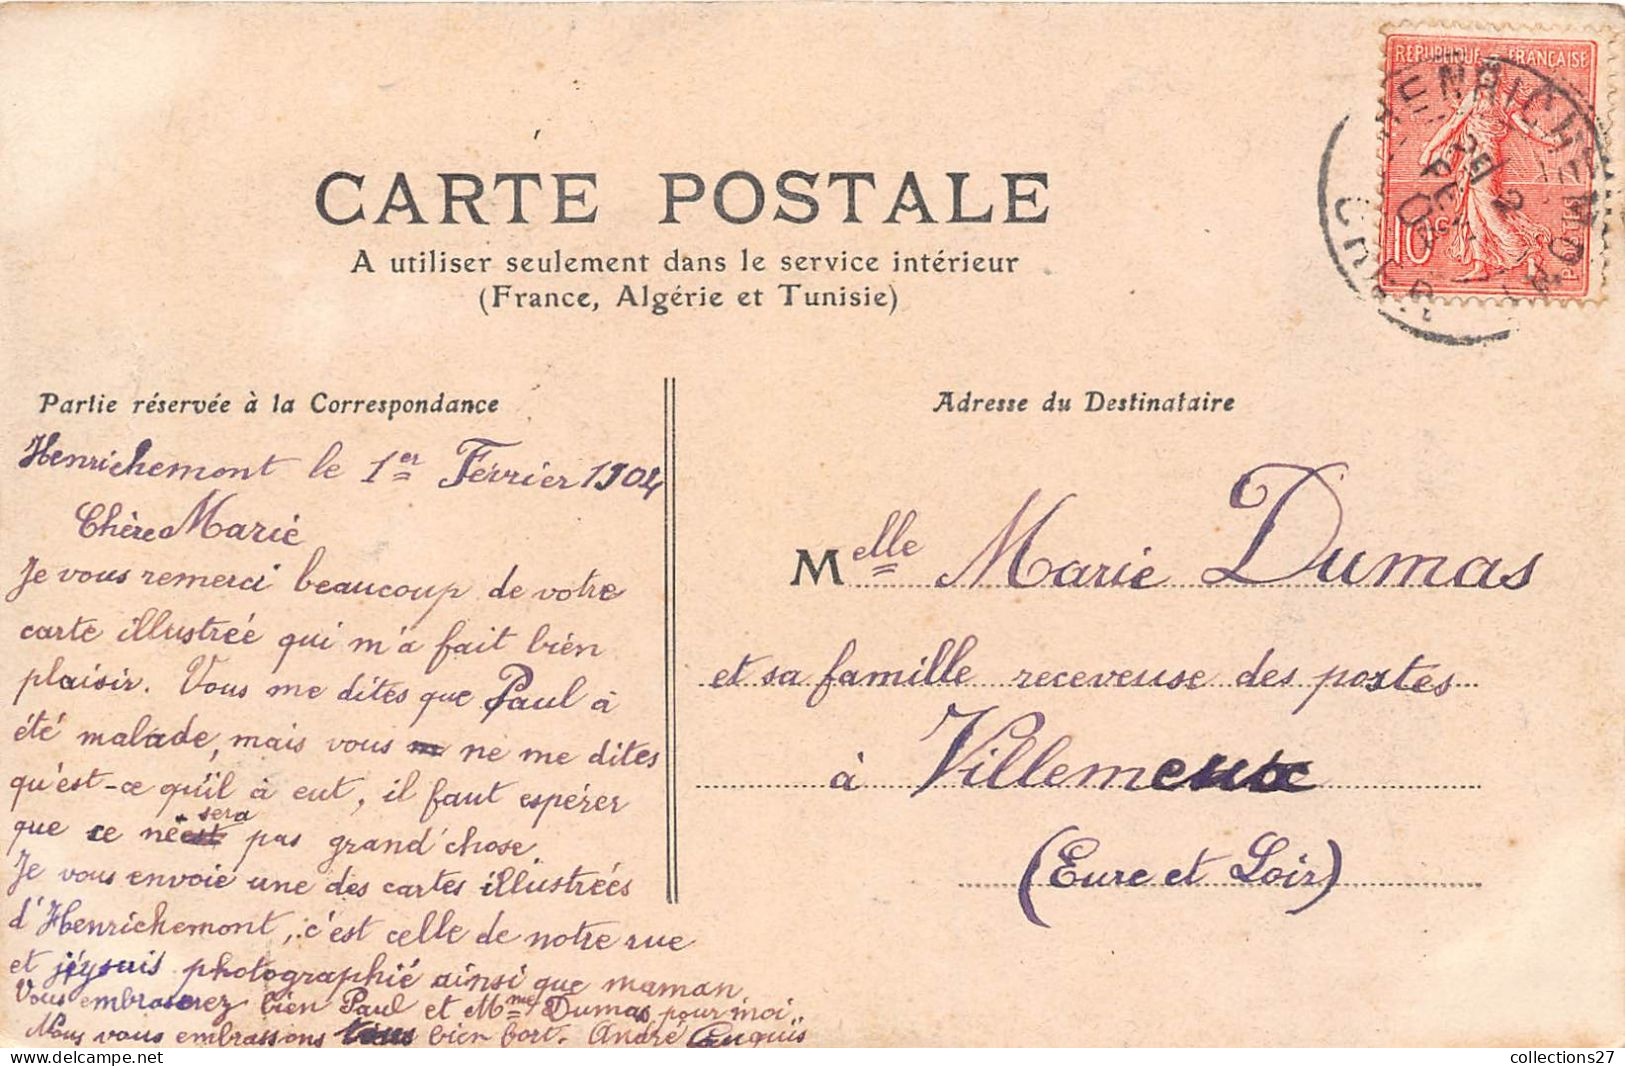 CARTE POSTALE
A utiliser seulement dans le service intérieur
(France, Algérie et Tunisie)
REPUBLIQUE FRANÇAISE
10
POSTES
HENRICHEMONT
CHER
Partie réservée à la Correspondance
Henrichemont le 1er Février 1904
Chère Marie
Je vous remerci beaucoup de votre
carte illustreé qui m'a fait bien
plaisir. Vous me dites que Paul à
été malade, mais vous ne me dites
qu'est-ce qu'il à eut, il faut espérer
que ce ne sera pas grand'chose.
Je vous envoie une des cartes illustreés
d'Henrichemont, c'est celle de notre rue
et j'y suis photographié ainsi que maman
Vous embrasserez bien Paul et Mme Dumas pour moi.
Nous vous embrassons tous bien fort. André
Adresse du Destinataire
Melle Marie Dumas
et sa famille receveuse des postes
à Villemeux
(Eure et Loir)
collections27